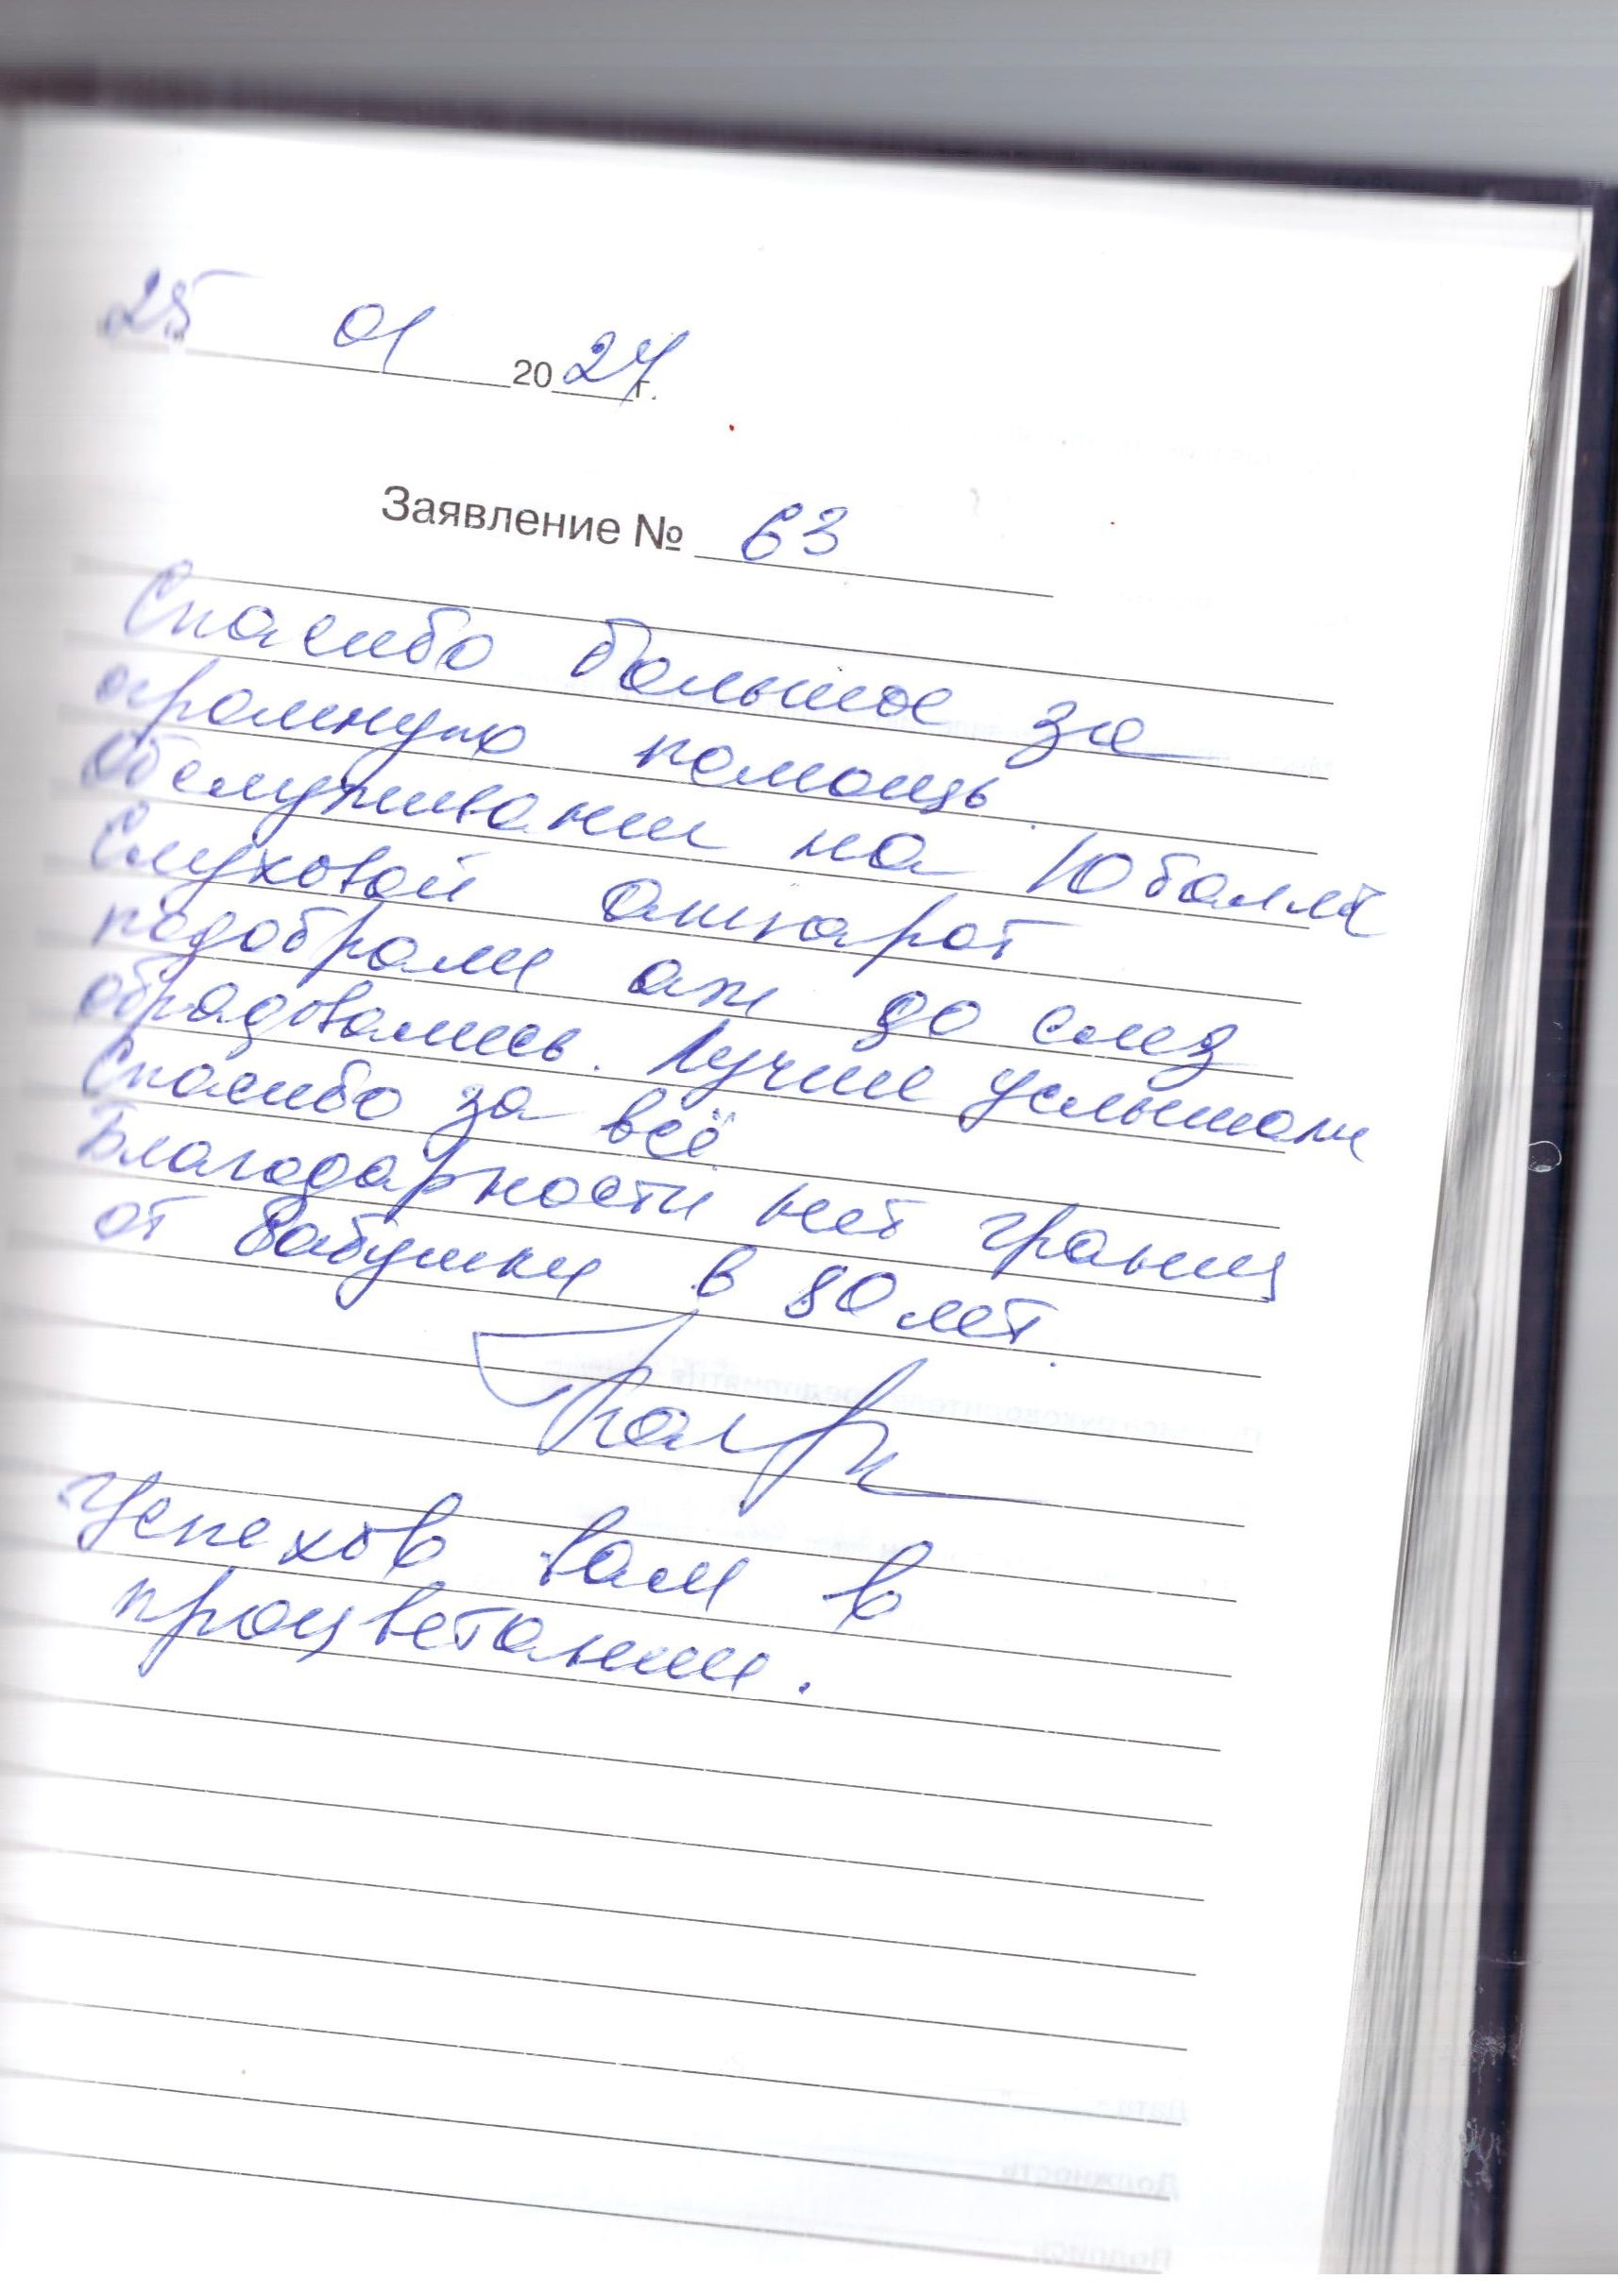 25 01 2024 г.
Заявление № 63
Спасибо большое за
огромную помощь.
Обслуживани на 10 баллов
Слуховой аппарат
подобрали аж до слез
обрадовались. Лучше услышали
Спасибо за всё
Благодарности нет границ
от бабушки в 80 лет.
Успехов вам в
процветании.